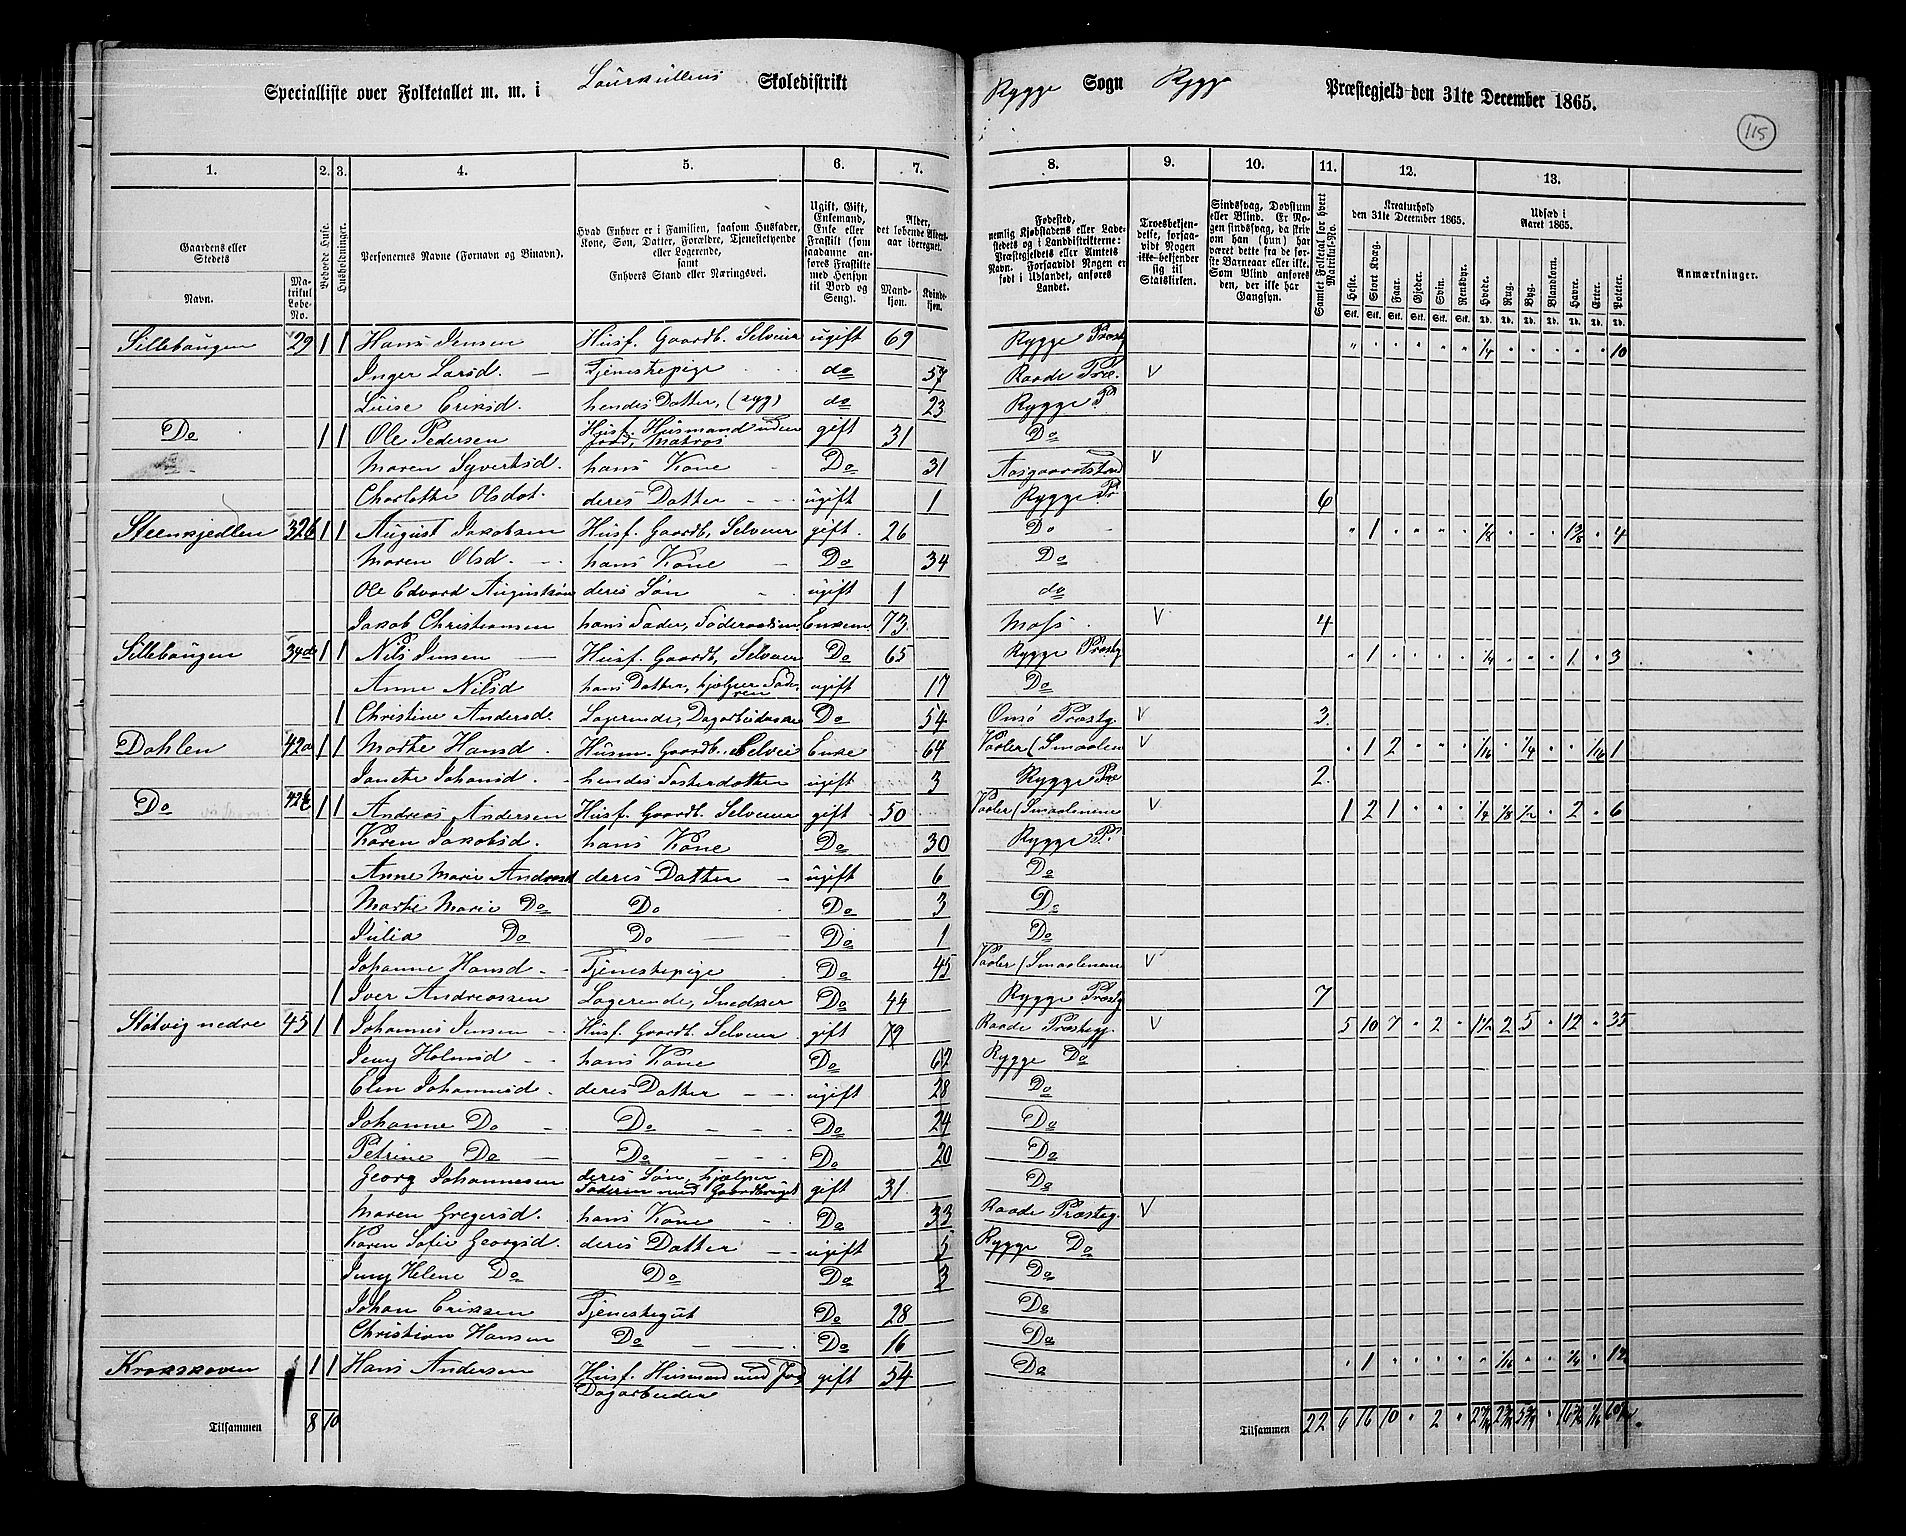 Specialliste over Folketallet m. m. i Skoledistrikt Rygge Sogn Rygge Præstegjeld den 31te December 1865.
115
1. 2. 3. 4. 5. 6. 7. 8. 9. 10. 11. 12. 13.
Gaardens eller Stedets Navn.
Matrikul Løbe-No.
Beboede Huse.
Husholdninger.
Personernes Navne (Fornavn og Binavn).
Hvad Enhver er i Familien, saasom Husfader, Kone, Søn, Datter, Forældre, Tjenestetyende eller Logerende, samt Enhvers Stand eller Næringsvei.
Ugift, Gift, Enkemand, Enke eller Fraskilt (som saadanne anføres Fraskilte med Hensyn til Bord og Seng).
Alder, det løbende Aldersaar iberegnet.
Mandkjøn. Kvindekjøn.
Fødested, nemlig Kjøbstadens eller Ladestedets og i Landdistrikterne: Præstegjeldets eller Amtets Navn. Forsaavidt Nogen er født i Udlandet, anføres Landet.
Troesbekjendelse, forsaavidt Nogen ikke bekjender sig til Statskirken.
Sindssvag, Døvstum eller Blind. Er Nogen sindssvag, da skriv om han (hun) har været dette fra de første Barneaar eller ikke. Som Blind anføres den, der ikke har Gangsyn.
Samlet Folketal for hvert Matrikul-No.
Kreaturhold den 31te December 1865.
Heste. Stort Kvæg. Faar. Gjeder. Svin. Rensdyr.
Udsæd i Aaret 1865.
Hvede. Rug. Byg. Blandkorn. Havre. Erter. Poteter.
Stk. Stk. Stk. Stk. Stk. Stk. Td. Td. Td. Td. Td. Td. Td.
Anmærkninger.
Sillebaugen 29 1 1 Hans Jensen Husf. Gaardb. Selveier ugift 69 Rygge Præstg ¼ 10
Inger Larsd. Tjenestepige do 57 Raade Præ. V
Luise Eriksd. hendes Datter, (syg) do 23 Rygge P
Do 1 1 Ole Pedersen Husf. Husmand uden Jord, Matros gift 31 Do
Maren Syvertsd. hans Kone Do 31 Aasgaardstrand V
Charlotte Olsdat. deres Datter ugift 1 Rygge Pr 6
Steenkjedlen 32b 1 1 August Jakobsen Husf. Gaardb. Selveier gift 26 Do 1 ⅛ 4
Maren Olsd. hans Kone Do 34 Do
Ole Edvard Augustsøn deres Søn ugift 1 do
Jakob Christiansen hans Fader, Føderaadsm. Enkem 73 Moss V 4
Sillebaugen 34 1 1 Nils Jensen Husf. Gaardb. Selveier Do 65 Rygge Præstg 1 ¼ 1 3
Anne Nilsd hans Datter, hjælper Faderen ugift 17 Do
1 Christine Andersd. Logerende, Dagarbeiderske Do 54 Onsø Præstg. V 3
Dahlen 42a 1 1 Marte Hansd. Husm. Gaardb. Selvei Enke 64 Vaaler (Smaalen V 1 2 1/16 ¼ 1/16 1
Janete Johansd. hendes Søsterdatter ugift 3 Rygge Præ 2
Do 42b 1 1 Andreas Andersen Husf. Gaardb. Selveier gift 50 Vaaler (Smaalenene V 1 2 1 ¼ ⅛ ½ 2 6
Karen Jakobsd. hans Kone Do 30 Rygge P.
Anne Marie Andreasd deres Datter ugift 6 Do
Marte Marie Do Do Do 3 Do
Julia Do Do Do 1 Do
Johanne Hansd Tjenestepige Do 45 Vaaler (Smaalenene V
1 Iver Andreassen Logerende, Snedker Do 44 Rygge Præstg 7
Støtvig nedre 45 1 1 Johannes Jensen Husf. Gaardb. Selveier gift 79 Raade Præstegj. V 5 10 7 2 1½ 2 5 12 35
Jeny Holmsd hans Kone Do 62 Rygge Do
Elen Johannesd. deres Datter ugift 28 Do
Johanne Do Do Do 24 Do
Petrine Do Do Do 20 Do
Georg Johannesen deres Søn, hjælper Faderen med Gaardbruget gift 31 Do
Maren Gregersd. hans Kone Do 33 Raade Præsteg. V
Karen Sofie Georgsd. deres Datter ugift 5 Rygge Do
Jeny Helene Do Do Do 3 Do
Johan Eriksen Tjenestegut Do 28 Do
Christian Hansen Do Do 16 Do
Krokskoven 1 1 Hans Andersen Husf. Husmand med Jord Dagarbeider gift 54 Do 1 1/16 ¼ 1½
Tilsammen 8 10
Tilsammen 22 6 16 10 2